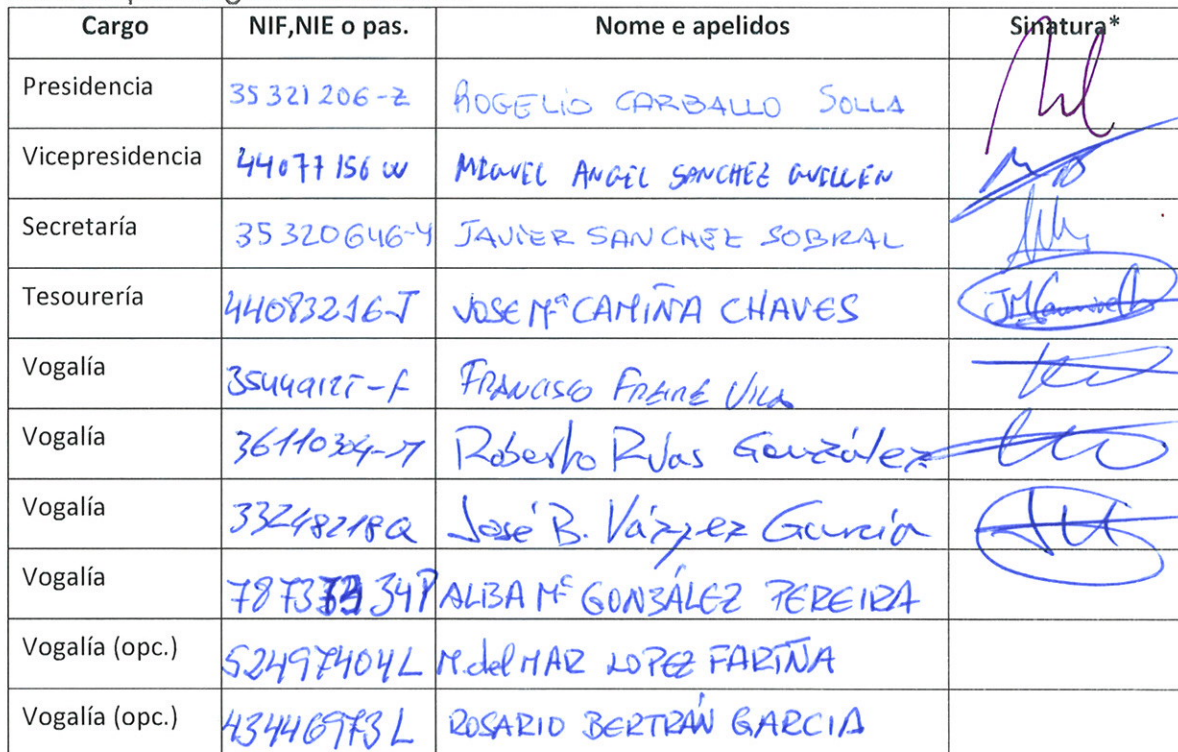 Cargo NIF,NIE o pas. Nome e apelidos Sinatura*
Presidencia 35321206-Z ROGELIO CARBALLO SOLLA
Vicepresidencia 44077156 W MIGUEL ANGEL SANCHEZ GUILLEN
Secretaría 35320646-Y JAVIER SANCHEZ SOBRAL
Tesourería 44083216-J JOSE Mª CAMIÑA CHAVES
Vogalía FRANCISCO FREIRE VILA
Vogalía 36110304-M Roberto Rúas González
Vogalía 33248218Q José B. Vázquez García
Vogalía ALBA Mª GONZÁLEZ PEREIRA
Vogalía (opc.) 52497404L M. del MAR LOPEZ FARIÑA
Vogalía (opc.) 43446973L ROSARIO BERTRÁN GARCIA